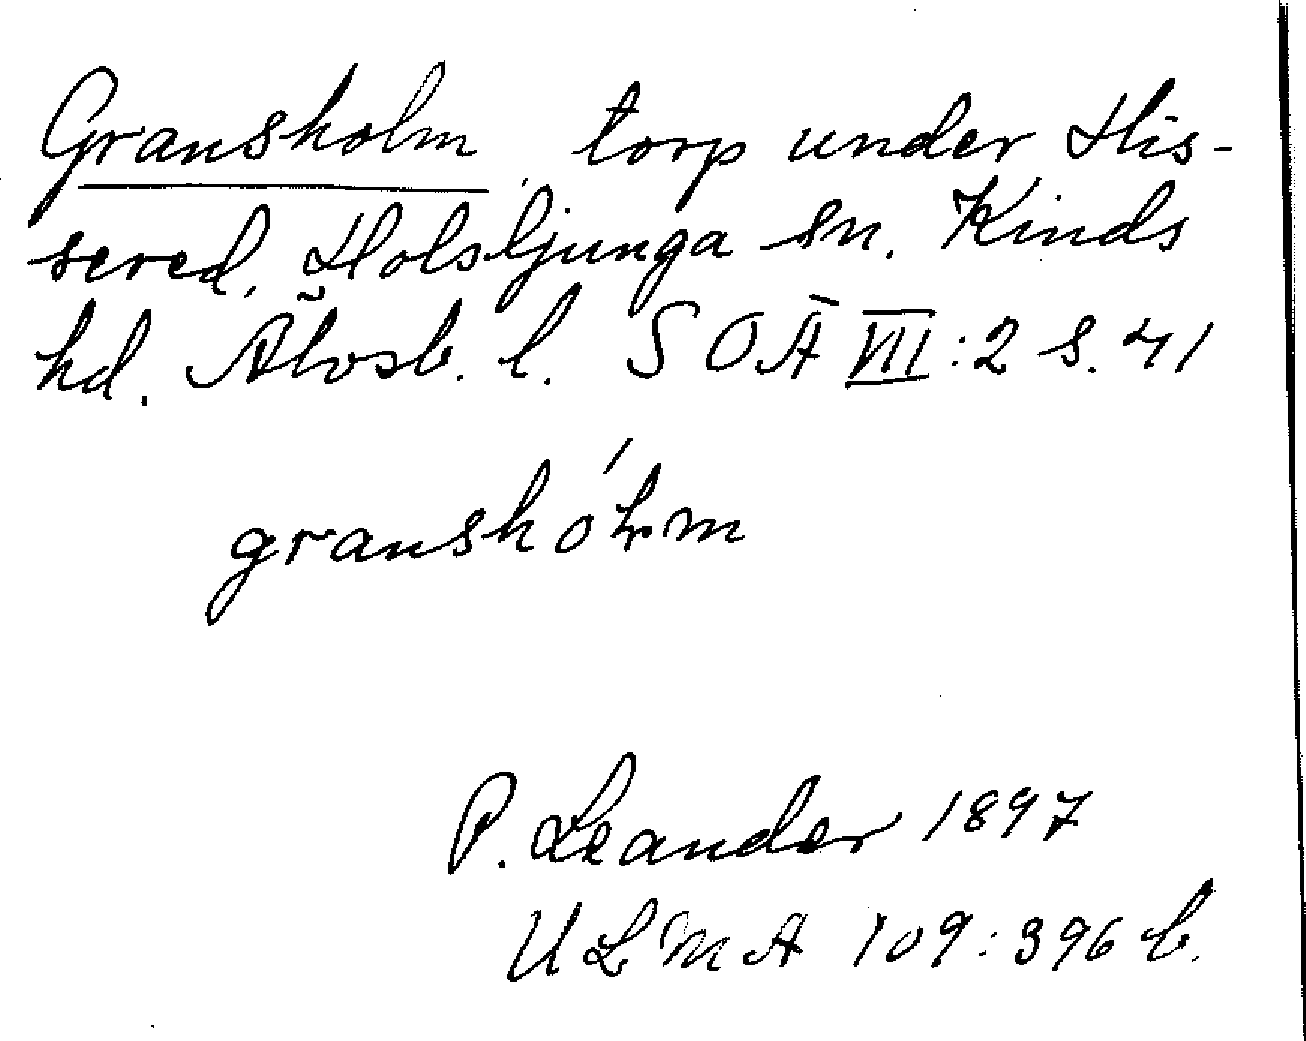 Gransholm, torp under His-
sered, Holsljunga sn. Kinds
hd. Älvsb. l. S O Ä VII:2 s. 41
granshólm
P. Leander 1897
U L M A 109:396 b.